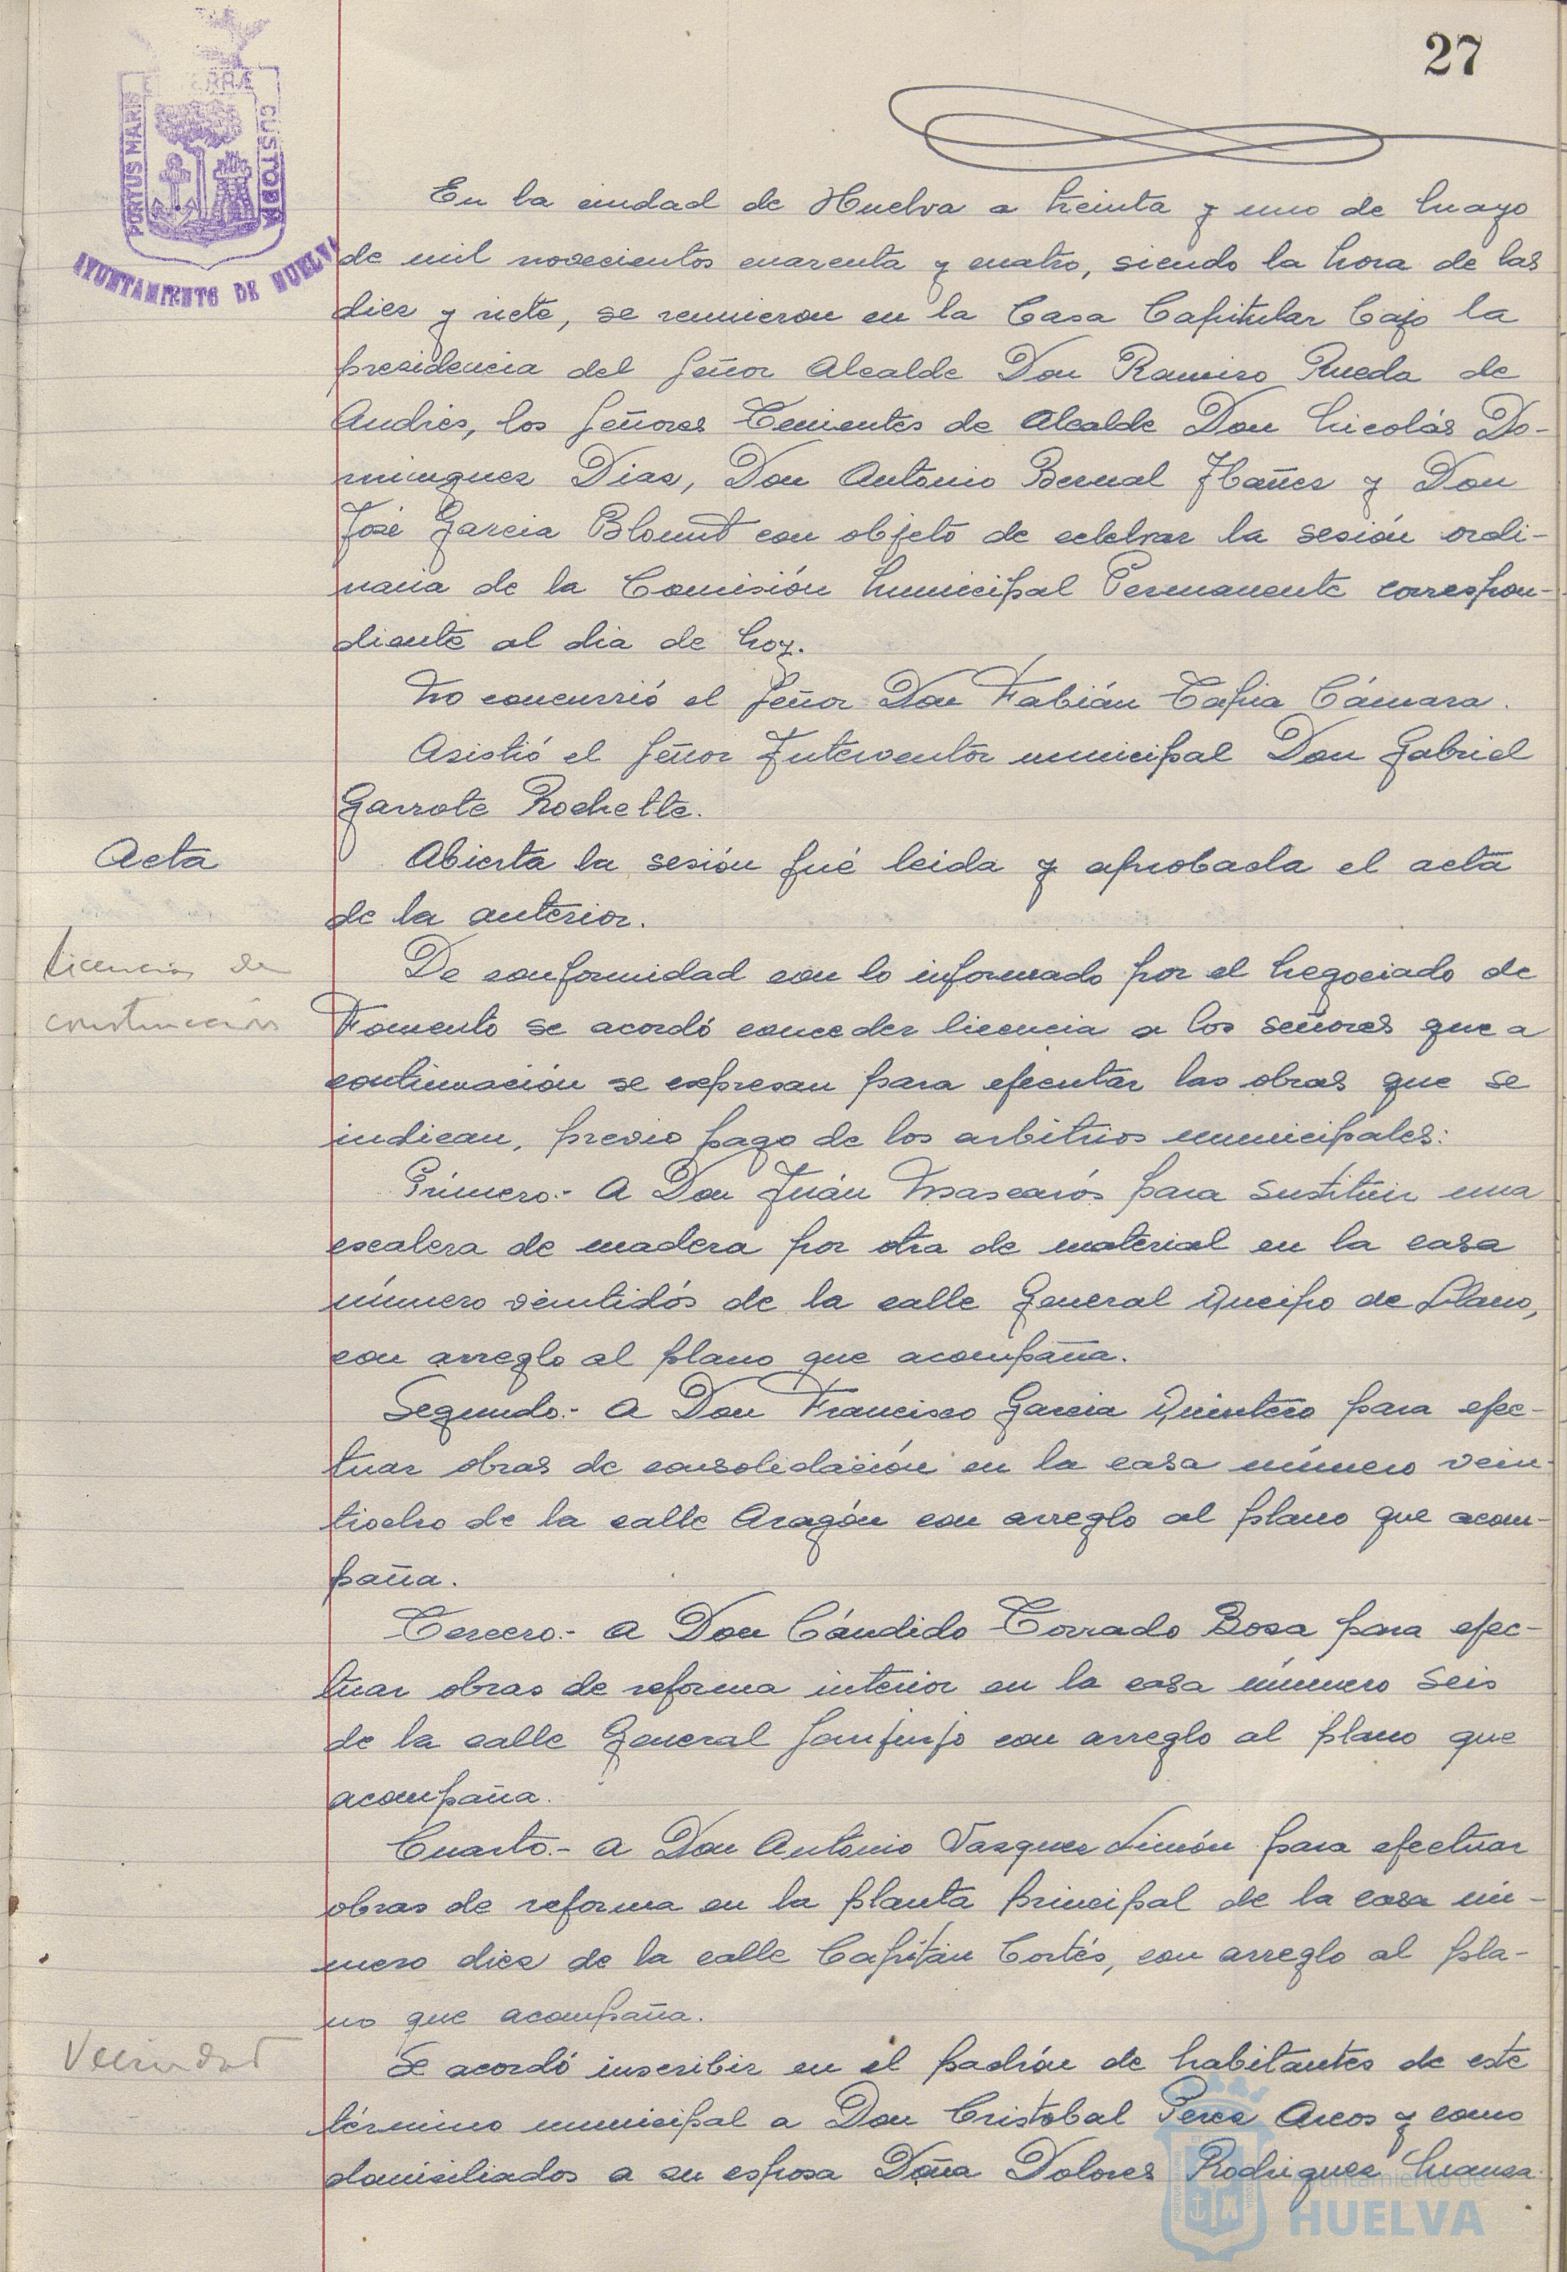 27
PORTUS MARIS ET TERRÆ CUSTODIA
AYUNTAMIENTO DE HUELVA
En la ciudad de Huelva a treinta y uno de Mayo
de mil novecientos cuarenta y cuatro, siendo la hora de las
diez y siete, se reunieron en la Casa Capitular bajo la
presidencia del Señor Alcalde Don Ramiro Rueda de
Andrés, los Señores Tenientes de Alcalde Don Nicolás Do-
minguez Diaz, Don Antonio Bernal Ibañez y Don
José Garcia Blount con objeto de celebrar la sesión ordi-
naria de la Comisión Municipal Permanente correspon-
diente al dia de hoy.
No concurrió el Señor Don Fabián Tapia Cámara.
Asistió el Señor Interventor municipal Don Gabriel
Garrote Rochette.
Acta
Abierta la sesión fué leida y aprobada el acta
de la anterior.
Licencias de
construcción
De conformidad con lo informado por el Negociado de
Fomento se acordó conceder licencia a los señores que a
continuación se expresan para ejecutar las obras que se
indican, previo pago de los arbitrios municipales:
Primero.- A Don Juán Mascarós para sustituir una
escalera de madera por otra de material en la casa
número veintidós de la calle General Queipo de Llano,
con arreglo al plano que acompaña.
Segundo.- A Don Francisco Garcia Quintero para efec-
tuar obras de consolidación en la casa número vein-
tiocho de la calle Aragón con arreglo al plano que acom-
paña.
Tercero.- A Don Cándido Torrado Bosa para efec-
tuar obras de reforma interior en la casa número seis
de la calle General Sanjurjo con arreglo al plano que
acompaña.
Cuarto.- A Don Antonio Vazquez Limón para efectuar
obras de reforma en la planta principal de la casa nú-
mero diez de la calle Capitán Cortés, con arreglo al pla-
no que acompaña.
Vecindad
Se acordó inscribir en el padrón de habitantes de este
término municipal a Don Cristobal Perez Arcos y como
domiciliados a su esposa Doña Dolores Rodriguez Manza
Ayuntamiento de
HUELVA